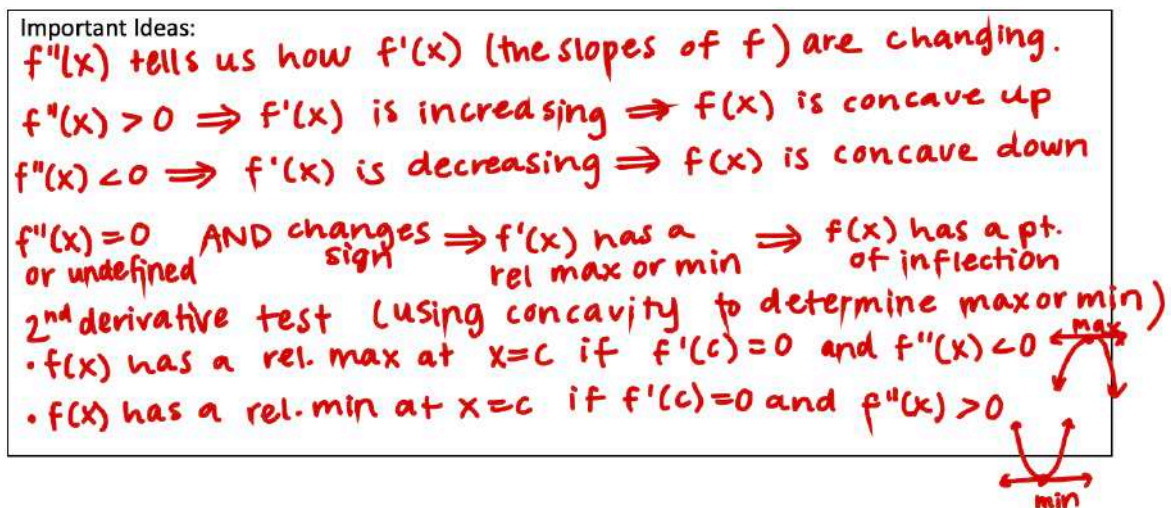 Important Ideas:
f"(x) tells us how f'(x) (the slopes of f) are changing.
f"(x) > 0 ⇒ f'(x) is increasing ⇒ f(x) is concave up
f"(x) < 0 ⇒ f'(x) is decreasing ⇒ f(x) is concave down
f"(x) = 0 AND changes ⇒ f'(x) has a ⇒ f(x) has a pt.
or undefined sign rel max or min of inflection
2nd derivative test (using concavity to determine max or min)
• f(x) has a rel. max at x=c if f'(c)=0 and f"(x) < 0 max
• f(x) has a rel. min at x=c if f'(c)=0 and f"(x) > 0
min